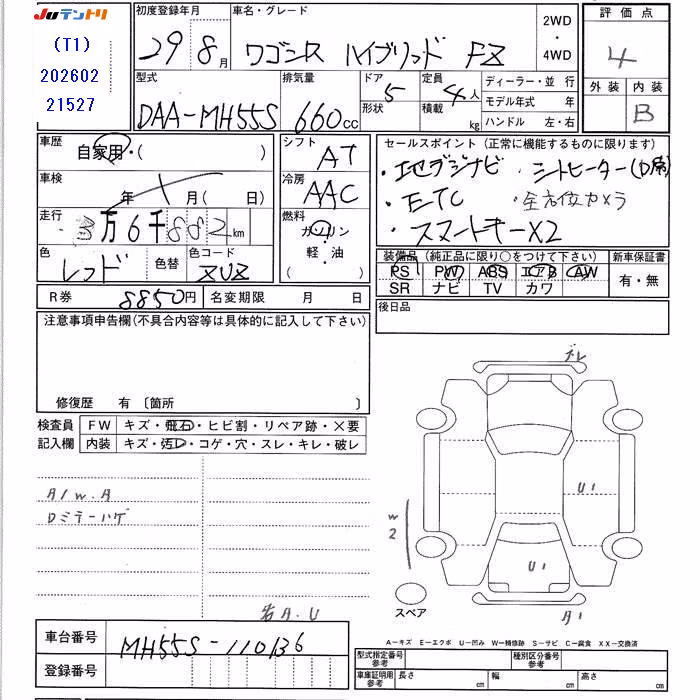 JUテントリ
(T1)
202602
21527
初度登録年月
29 8月
車名・グレード
ワゴンR ハイブリッド FZ
2WD
・
4WD
評価点
4
外装 内装
B
型式
DAA-MH55S
排気量
660cc
ドア
5
形状
定員
4人
積載 kg
ディーラー・並行
モデル年式 年
ハンドル 左・右
車歴
自家用・( )
シフト
AT
車検
年 月( 日)
冷房
AAC
走行
3万6千882km
燃料
ガソリン
軽・油
( )
色
レッド
色替
色コード
ZUZ
セールスポイント (正常に機能するものに限ります)
・地デジナビ ・シートヒーター(D席)
・ETC ・全方位カメラ
・スマートキーX2
装備品 (純正品に限り○をつけて下さい)
PS PW ABS エアB AW
SR ナビ TV カワ
新車保証書
有・無
R券 8850円
名変期限 月 日
後日品
注意事項申告欄(不具合内容等は具体的に記入して下さい)
修復歴 有 〔箇所 〕
検査員
記入欄
FW キズ・飛石・ヒビ割・リペア跡・×要
内装 キズ・汚レ・コゲ・穴・スレ・キレ・破レ
A/W.A
Dミラーハゲ
W2
U1
U1
スペア
A-キズ E-エクボ U-凹み W-補修跡 S-サビ C-腐食 XX-交換済
車台番号 MH55S-110136
登録番号
型式指定番号
参考
種別区分番号
参考
車庫証明用
参考
長さ cm
幅 cm
高さ cm